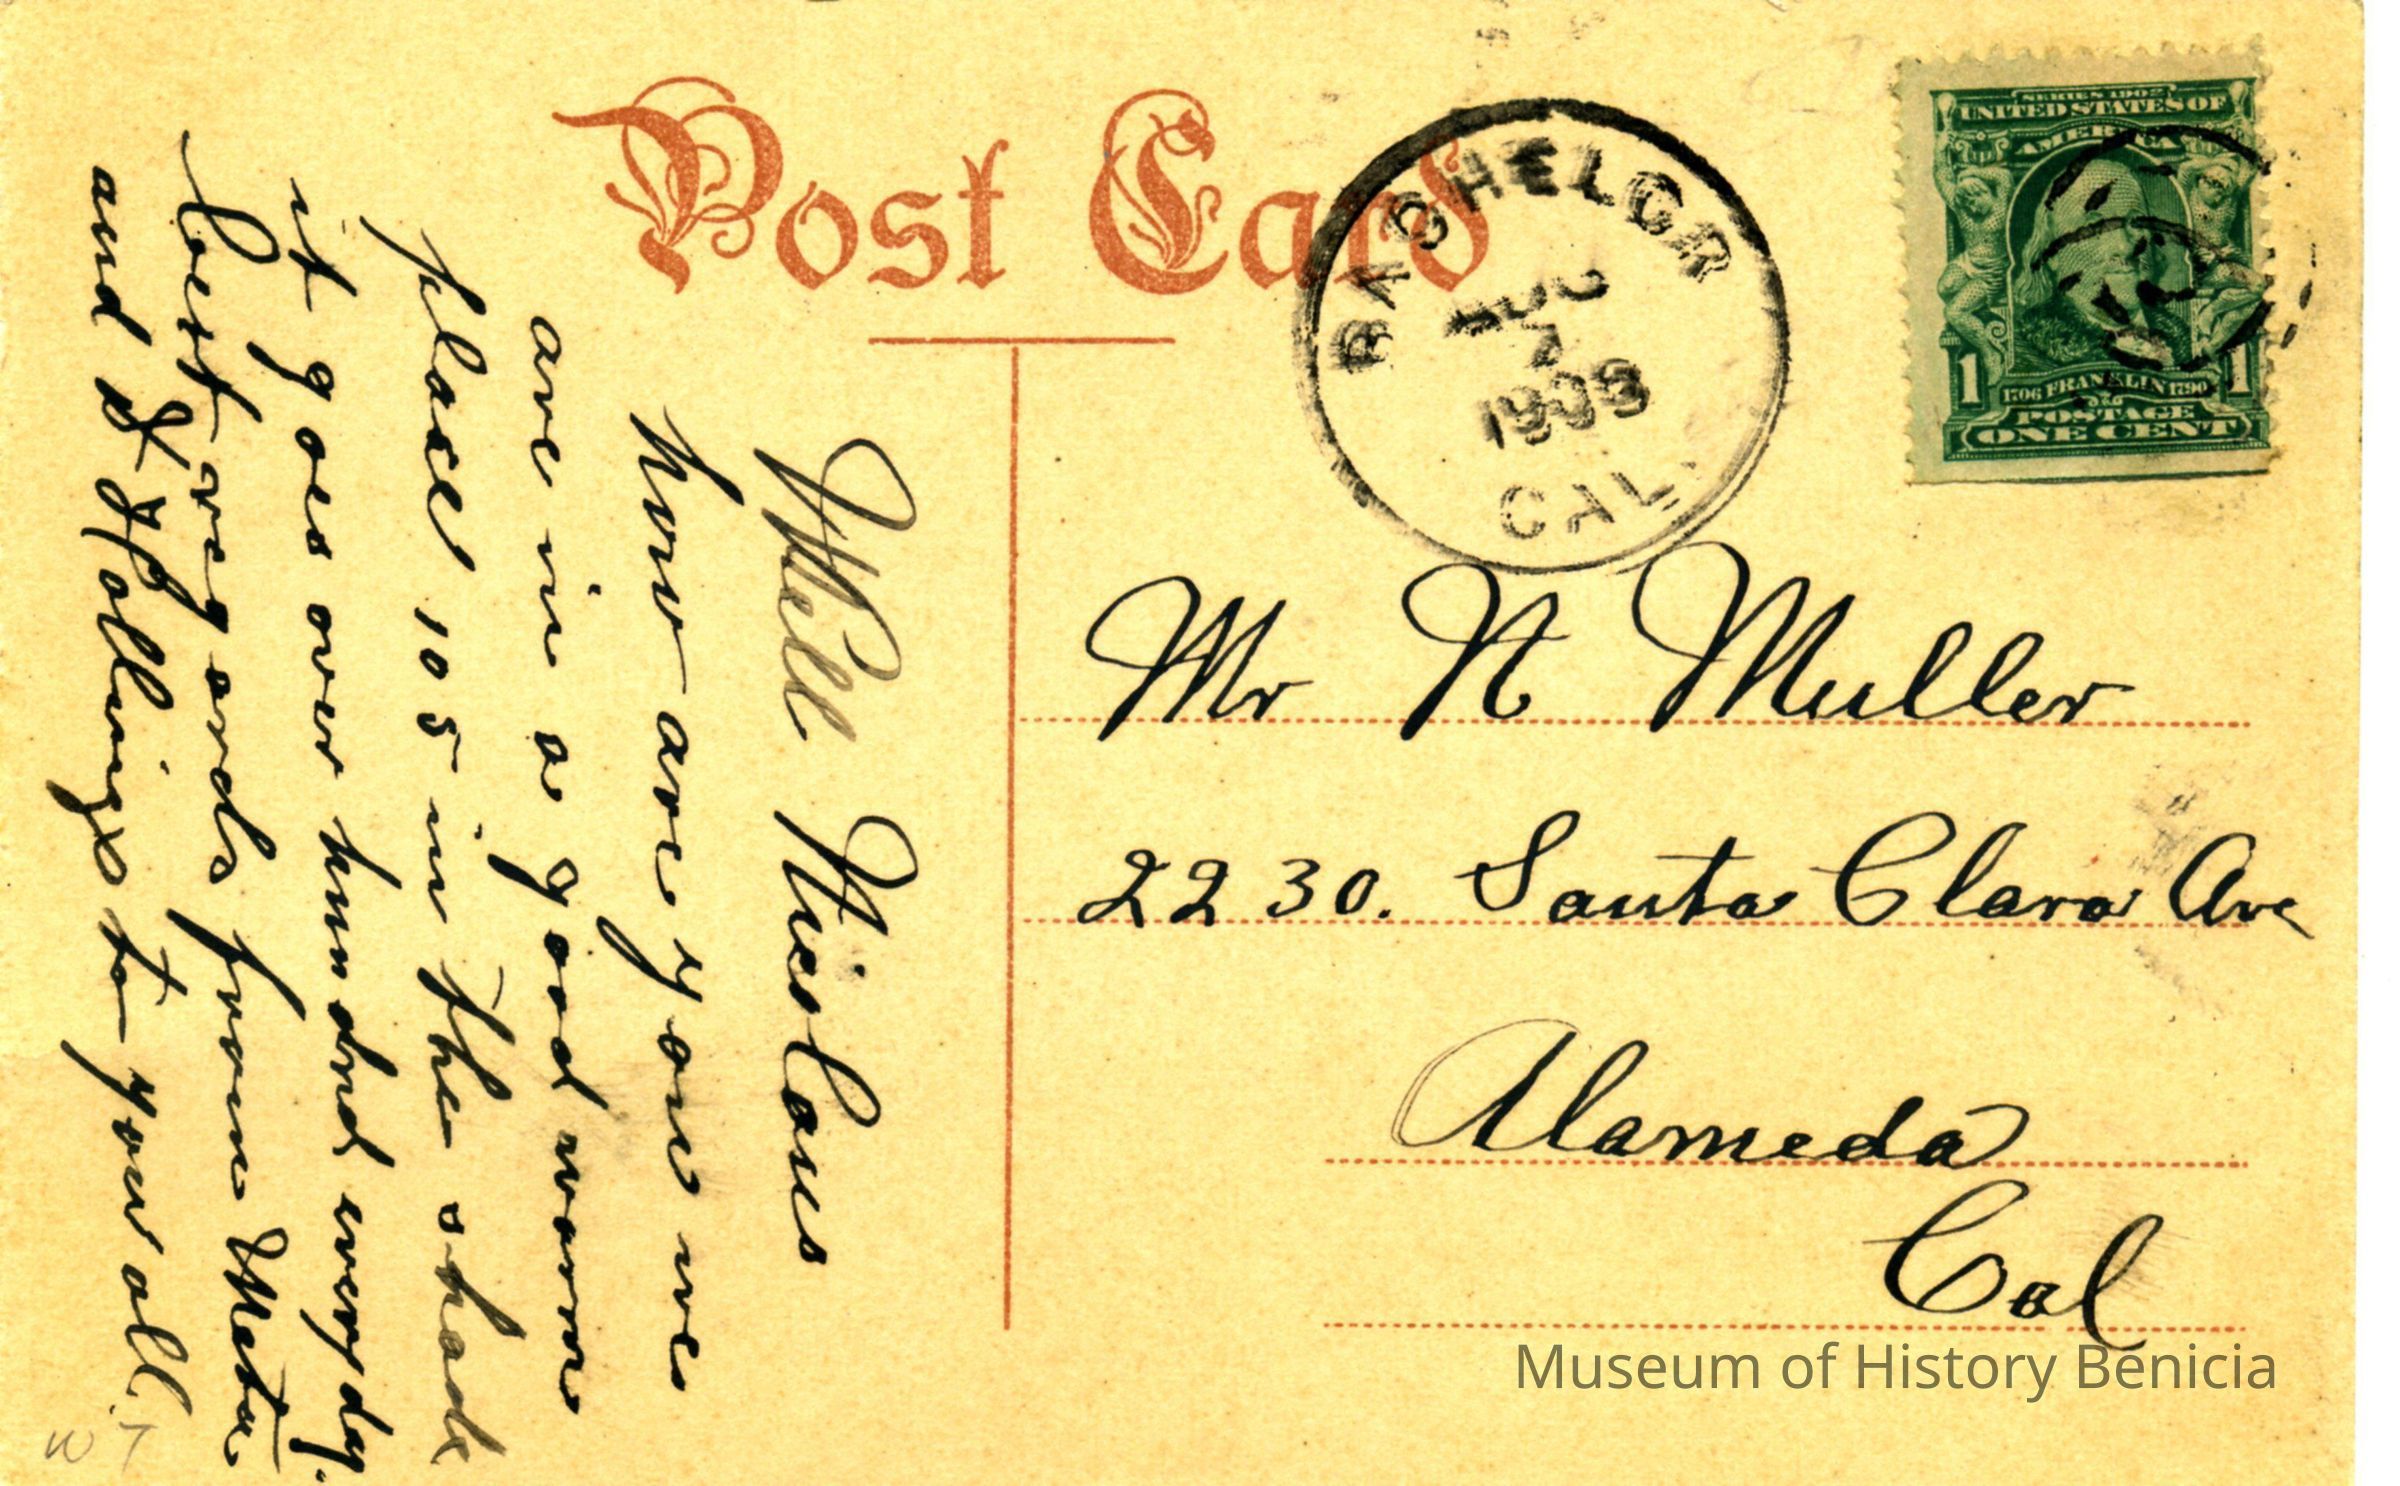 Post Card
BACHELOR
AUG
7
1908
CAL.
SERIES 1902
UNITED STATES OF
AMERICA
1 1
1706 FRANKLIN 1790
POSTAGE
ONE CENT
Mr N Muller
2230. Santa Clara Ave
Alameda
Cal
Well Nicolaus
how are you we
are in a good warm
place 105 in the shade
it goes over hundred everyday.
best regards from Meta
and to you all.
Museum of History Benicia